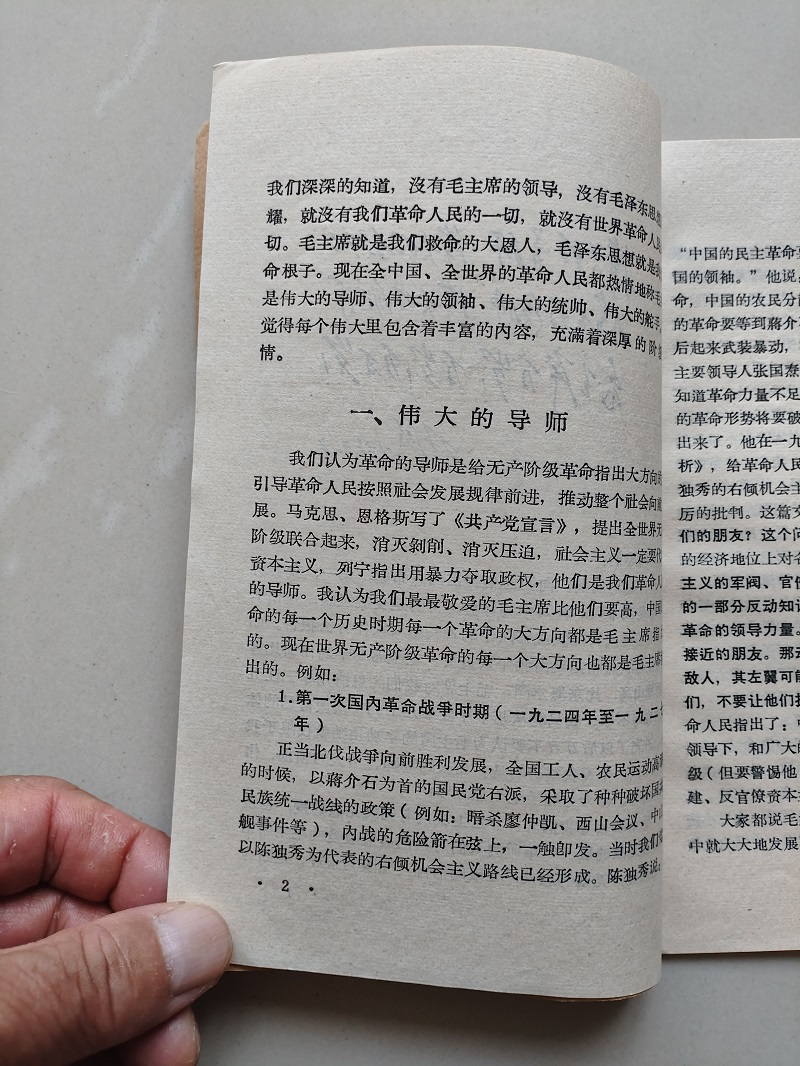 我们深深的知道，沒有毛主席的领导，沒有毛泽东思想
耀，就沒有我们革命人民的一切，就沒有世界革命人民
切。毛主席就是我们救命的大恩人，毛泽东思想就是我
命根子。现在全中国、全世界的革命人民都热情地称毛
是伟大的导师、伟大的领袖、伟大的统帅、伟大的舵手，
觉得每个伟大里包含着丰富的内容，充满着深厚的阶级
情。
一、伟大的导师
我们认为革命的导师是给无产阶级革命指出大方向的
引导革命人民按照社会发展规律前进，推动整个社会向前
展。马克思、恩格斯写了《共产党宣言》，提出全世界无
阶级联合起来，消灭剝削、消灭压迫，社会主义一定要代
资本主义，列宁指出用暴力夺取政权，他们是我们革命人
的导师。我认为我们最最敬爱的毛主席比他们要高，中国
命的每一个历史时期每一个革命的大方向都是毛主席指
的。现在世界无产阶级革命的每一个大方向也都是毛主席
出的。例如：
1.第一次国內革命战爭时期（一九二四年至一九二七
年）
正当北伐战爭向前胜利发展，全国工人、农民运动高
的时候，以蔣介石为首的国民党右派，采取了种种破坏国
民族统一战线的政策（例如：暗杀廖仲凯、西山会议、中山
舰事件等），內战的危险箭在弦上，一触卽发。当时我们
以陈独秀为代表的右倾机会主义路线已经形成。陈独秀说：
· 2 ·
“中国的民主革命
国的领袖。”他说，
命，中国的农民分
的革命要等到蔣介
后起来武装暴动，
主要领导人张国焘
知道革命力量不足
的革命形势将要破
出来了。他在一九
析》，给革命人民
独秀的右倾机会主
厉的批判。这篇文
们的朋友？这个问
的经济地位上对各
主义的军阀、官僚
的一部分反动知识
革命的领导力量。
接近的朋友。那动
敌人，其左翼可能
们，不要让他们扰
命人民指出了：中
领导下，和广大的
级（但要警惕他
建、反官僚资本
大家都说毛
中就大大地发展